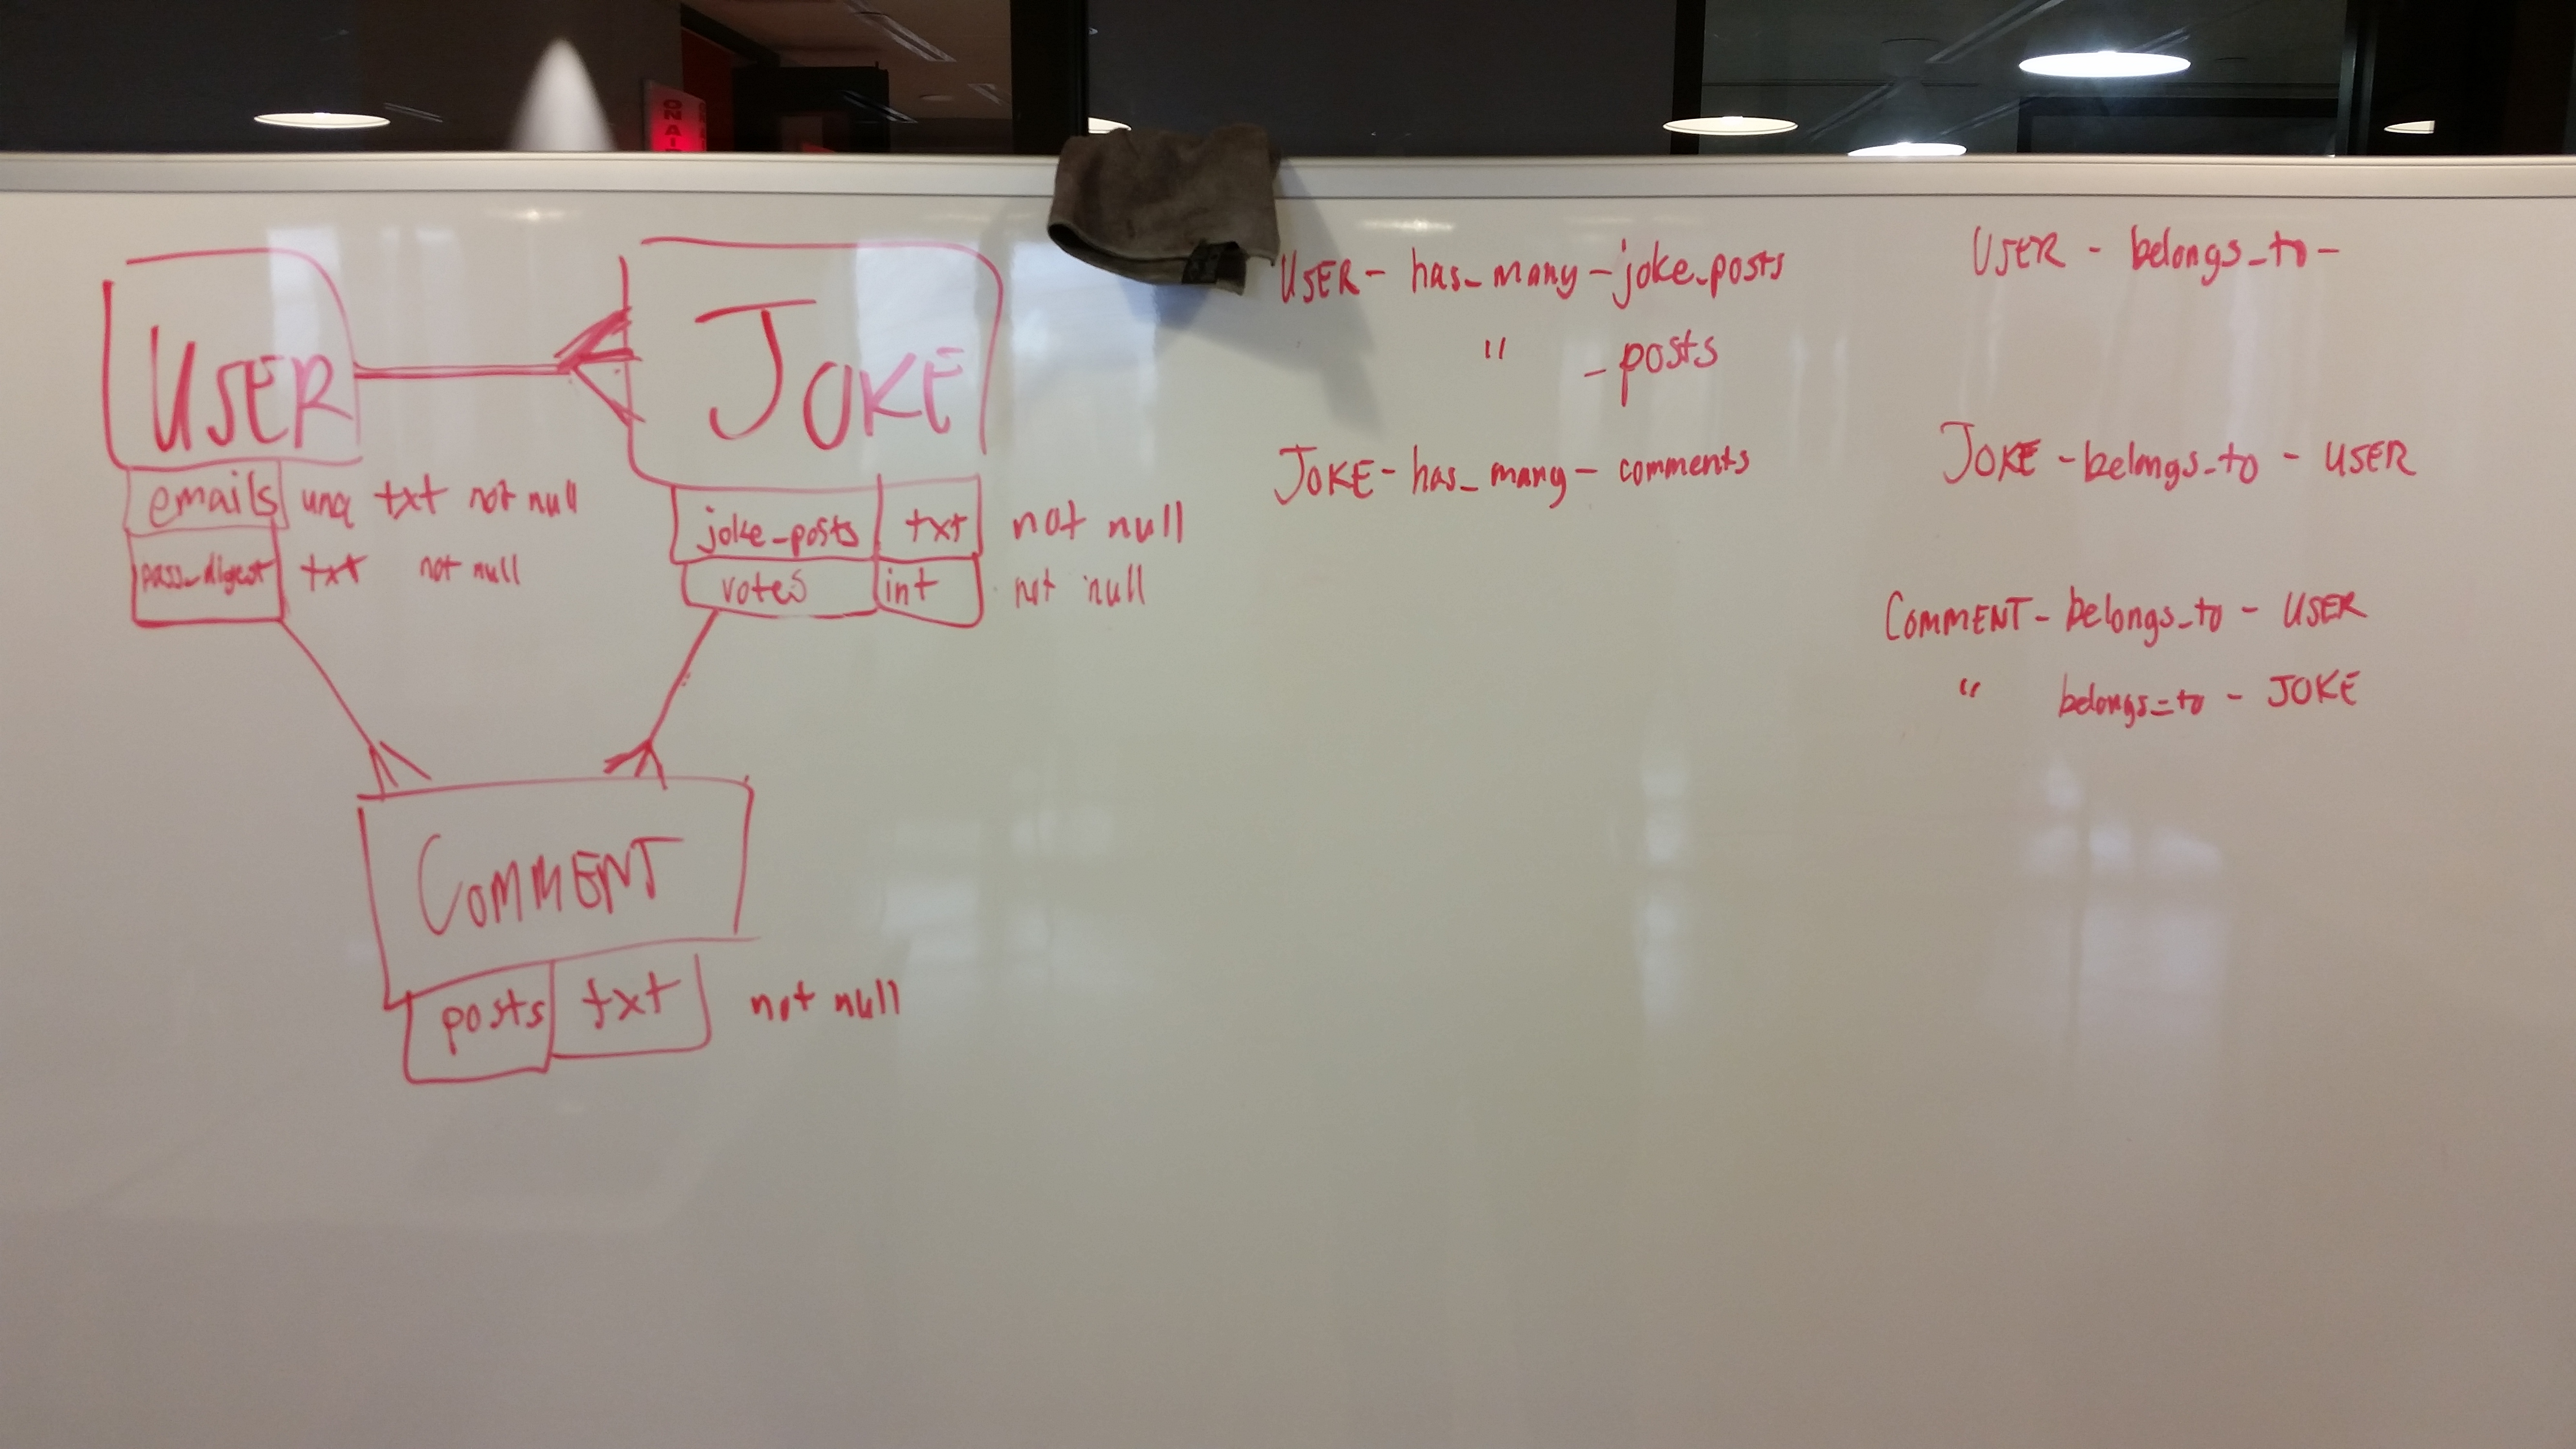 ON AI
USER
JOKE
emails unq txt not null
pass_digest txt not null
joke_posts txt not null
votes int not null
COMMENT
posts txt not null
USER - has_many - joke_posts
" - posts
JOKE - has_many - comments
USER - belongs_to -
JOKE - belongs_to - USER
COMMENT - belongs_to - USER
" belongs_to - JOKE